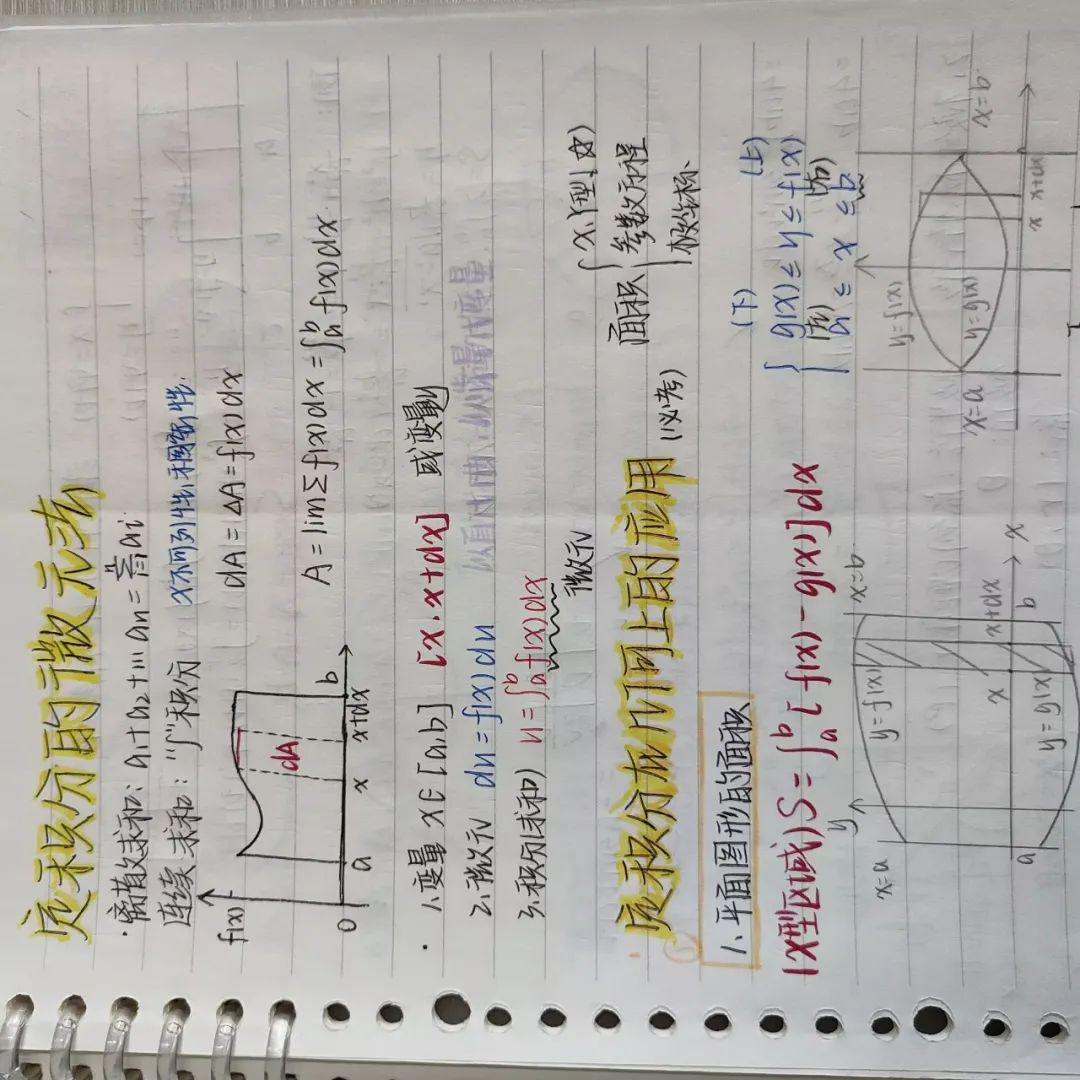 定积分的微元法
·离散求和: a₁+a₂+…+aₙ=∑ᵢ₌₁ⁿaᵢ
连续求和:"∫"积分 x不可列性,稠密性.
f(x)
dA
0 a x x+dx b
dA=ΔA=f(x)dx
A=lim∑f(x)dx=∫ₐᵇf(x)dx.
· 1、变量 x∈[a.b] [x.x+dx] 或变量y
2、微元 du=f(x)dx
3、积分(求和) u=∫ₐᵇf(x)dx
微元
定积分在几何上的应用 (必考)
面积 { x、y型、☆
参数方程
极坐标、
1、平面图形的面积
(下) (上)
{ g(x)≤y≤f(x)
(左) (右)
a≤x≤b
(x型区域) S=∫ₐᵇ[f(x)-g(x)]dx
x=a y y=f(x) x=b
x x+dx
a y=g(x) b x
y=f(x)
x=a y=g(x) x=b
x x+dx